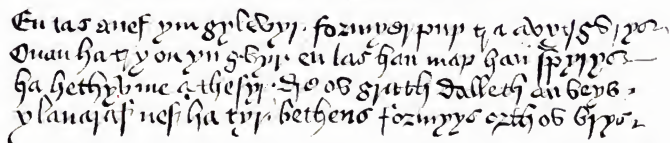 En tas a nef ym gylwyr · formyer pup tra a vyt gvrys
Onan ha try on yn gvyr en tas han map han spyrys
ha hethyv me a thesyr · dre ov grath dalleth an beys
y lauaraf nef ha tyr · bethens formyys orth ov brys